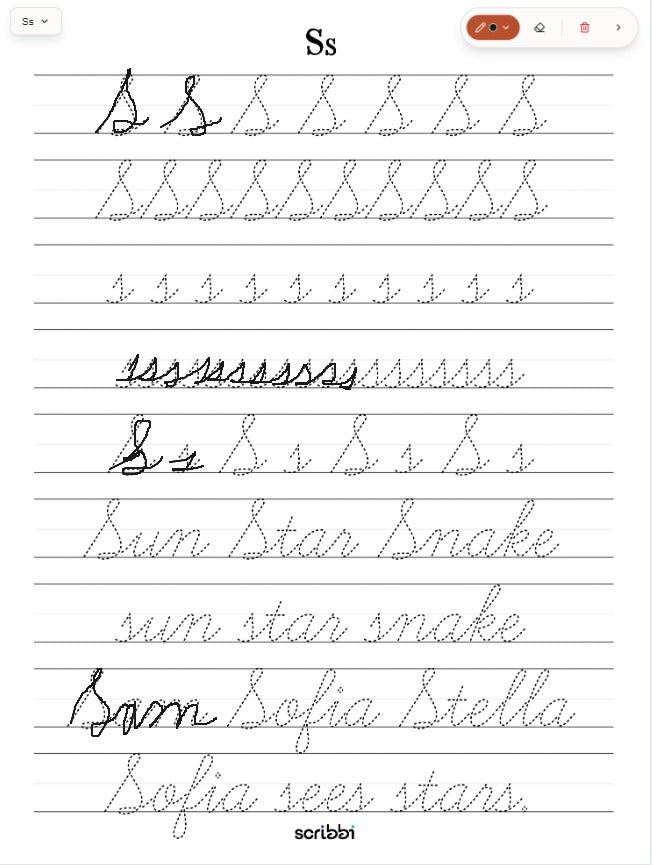 Ss
Ss
S S S S S S S
S S S S S S S S S S
s s s s s s s s s s
ssssssssssssssssss
S s S s S s S s
Sun Star Snake
sun star snake
Sam Sofia Stella
Sofia sees stars.
scribbi